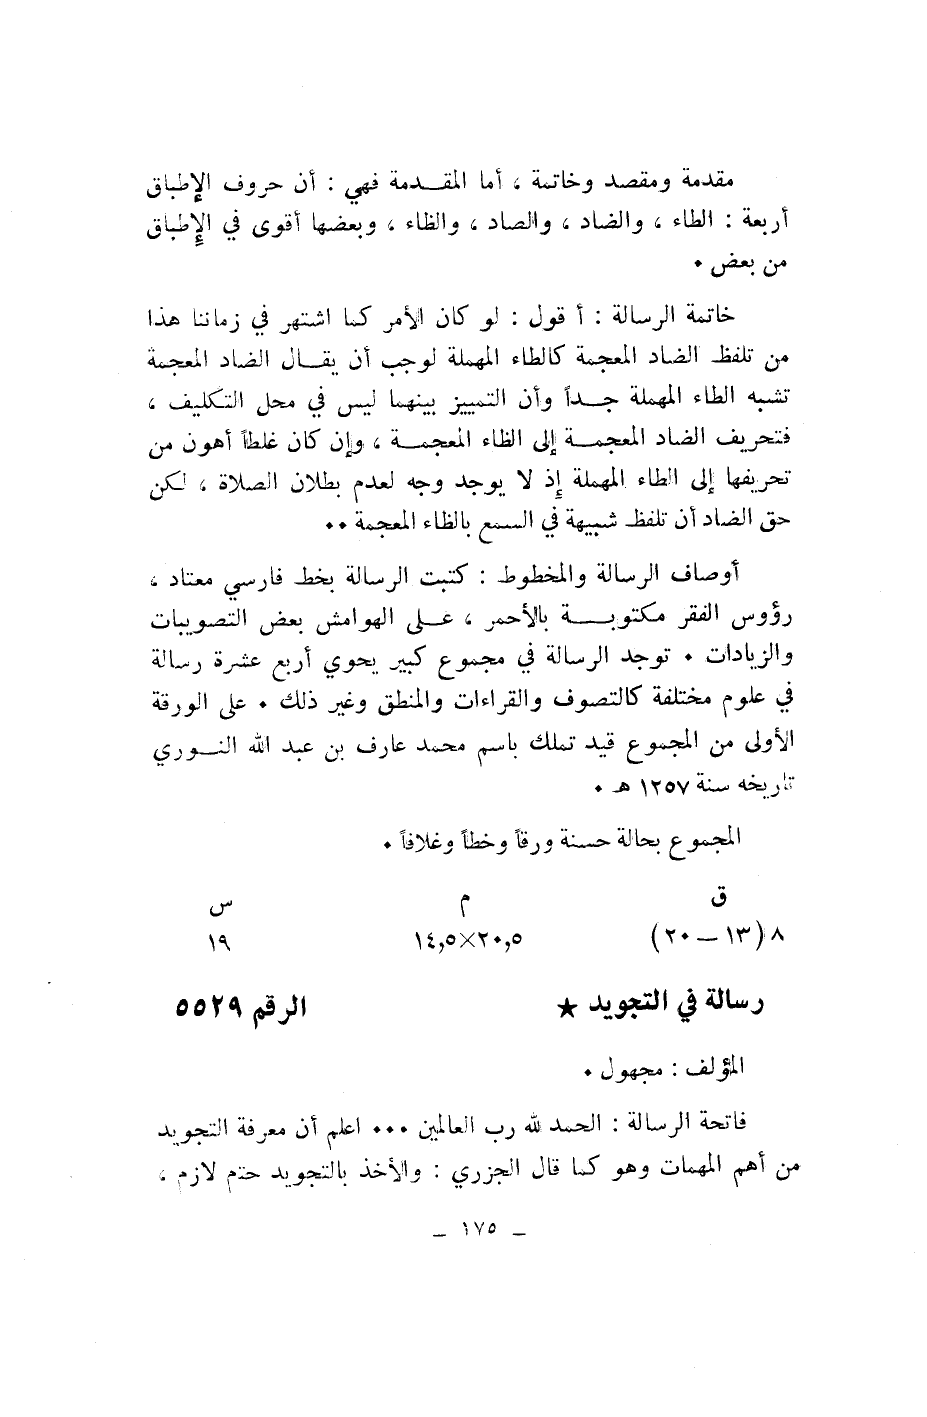 مقدمة ومقصد وخاتمة ، أما المقدمة فهي : أن حروف الإطباق
أربعة : الطاء ، والضاد ، والصاد ، والظاء ، وبعضها أقوى في الإطباق
من بعض ٠
خاتمة الرسالة : أقول : لو كان الأمر كما اشتهر في زماننا هذا
من تلفظ الضاد المعجمة كالطاء المهملة لوجب أن يقال الضاد المعجمة
تشبه الطاء المهملة جداً وأن التمييز بينهما ليس في محل التكليف ،
فتحريف الضاد المعجمة إلى الظاء المعجمة ، وإن كان غلطاً أهون من
تحريفها إلى الطاء المهملة إذ لا يوجد وجه لعدم بطلان الصلاة ، لكن
حق الضاد أن تلفظ شبيهة في السمع بالظاء المعجمة ٠٠
أوصاف الرسالة والمخطوط : كتبت الرسالة بخط فارسي معتاد ،
رؤوس الفقر مكتوبة بالأحمر ، على الهوامش بعض التصويبات
والزيادات ٠ توجد الرسالة في مجموع كبير يحوي أربع عشرة رسالة
في علوم مختلفة كالتصوف والقراءات والمنطق وغير ذلك ٠ على الورقة
الأولى من المجموع قيد تملك باسم محمد عارف بن عبد الله النوري
تاريخه سنة ١٢٥٧ هـ ٠
المجموع بحالة حسنة ورقاً وخطاً وغلافاً ٠
ق م س
٨ (١٣ – ٢٠) ٢٠,٥×١٤,٥ ١٩
رسالة في التجويد ★ الرقم ٥٥٢٩
المؤلف : مجهول ٠
فاتحة الرسالة : الحمد لله رب العالمين ٠٠٠ اعلم أن معرفة التجويد
من أهم المهمات وهو كما قال الجزري : والأخذ بالتجويد حتم لازم ،
– ١٧٥ –